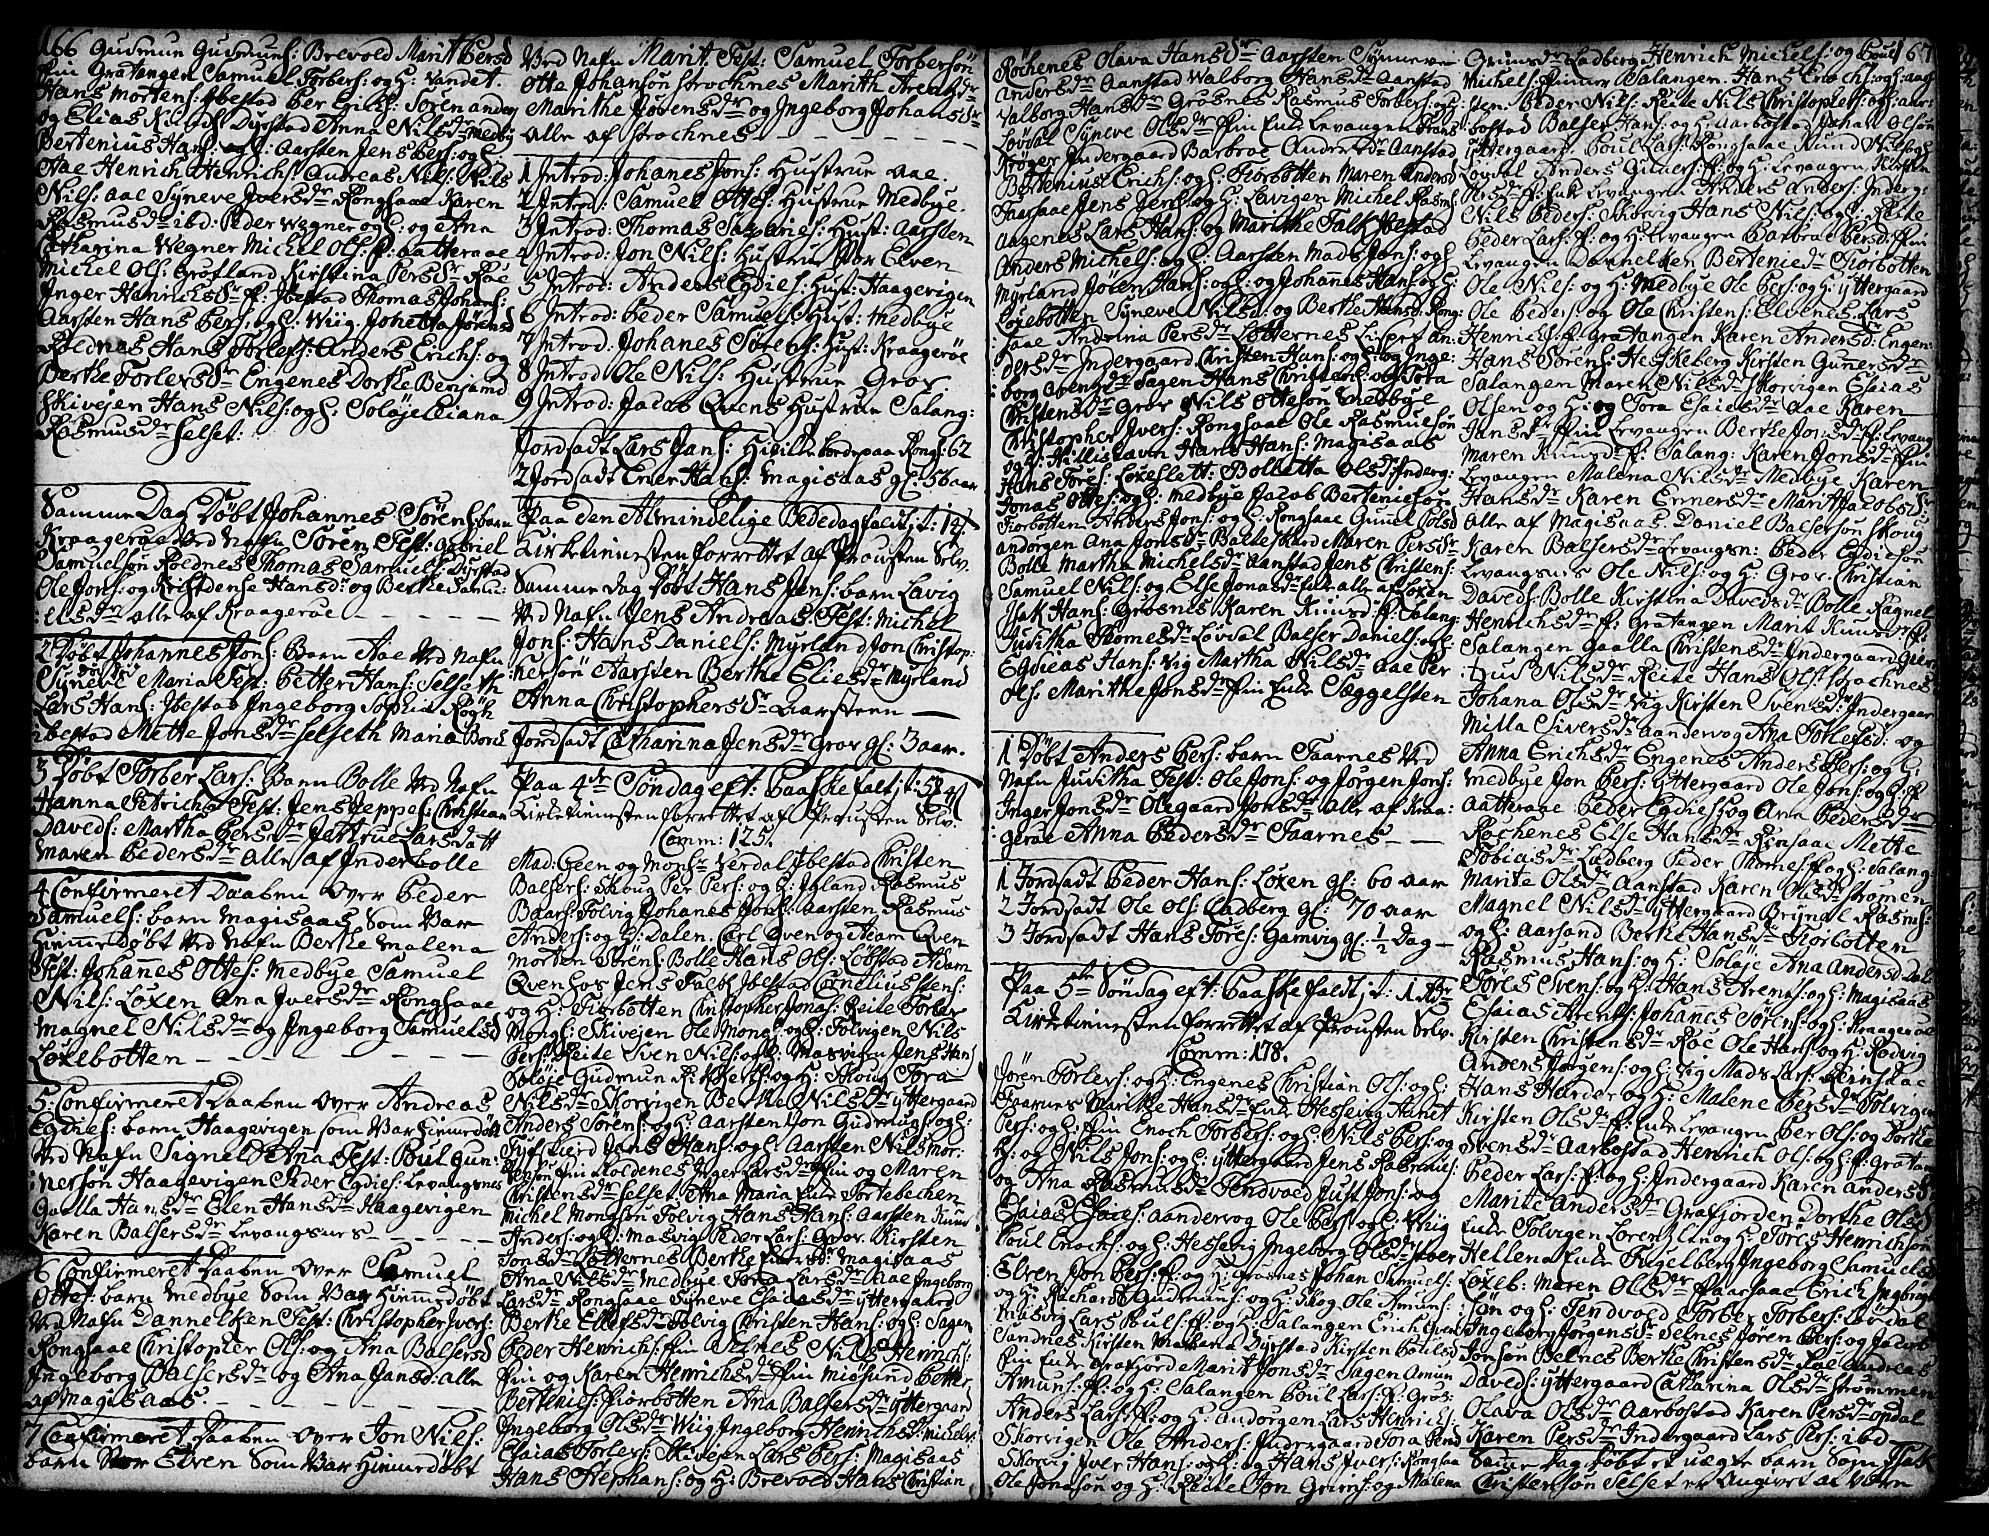 166 Gudmun Gudmuns: Brevold Marit Persd
Fin Gratangen Samuel Torbers: og H: Vandet.
Hans Mortens: Ibestad Per Erichs: Søren andorg
og Elias Dyrstad Anna Nilsdr Medby
Bertenius Hans: og H: Aarsten Jens Pers: og H:
Aae Henrich Henrichs: Andreas Nils: Nils
Nils: aae Syneve Iversdr Rongsaae Karen
Rasmusdr ibd: Peder Wegner og H: og Ana
Catharina Wegner Michel Ols: f: aatteraae
Michel Ols: Grøfland Kirstina Persdr Røe
Inger Hanrichsdr f: Ibestad Thomas Johans:
Aarsten Hans Pers: og H: Wiig Johetta Jørensd
Roldnes Hans Torlefs: Anders Erichs: og
Berthe Torlefsdr Engenes Dorthe Benjamd
Skivejen Hans Nils: og H: Soløje Eliana
Rasmusdr Selset:
Samme Dag Døbt Johannes Sørens: barn
Kraagerøe Ved Nafn Søren Test: Gabriel
Samuelsøn Roldnes Thomas Samuels: Dyrstad
Ole Jons: og Kristdense Hansdr og Berthe Samu-
:elsdr alle af Kraagerøe
2 Døbt Johannes Jons: Barn Aae Ved Nafn
Syneve Maria Test: Petter Hans: Selseth
Lars Hans: Ibestad Ingeborg Sophia Rogh
Ibestad Mette Jonsdr Selseth Maria Borch
3 Døbt Torber Lars: Barn Bolle Ved Nafn
Hanna Fridricha Test: Jens Jeppes: Christian
Davids: Martha Persdr Jertrue Larsdatt
Maren Pedersdr alle af Inderbolle
4 Confirmeret Daaben over Peder
Samuels: barn Magisaas Som Var
Hiemmedøbt Ved Nafn Berthe Malena
Test: Johannes Ottes: Medbye Samuel
Nils: Løxen Ana Iversdr Rongsaae
Magnel Nilsdr og Ingeborg Samuelsd
Løxebotten
5 Confirmeret Daaben over Andreas
Egdies: barn Haagevigen som Var Hiemmedøbt
Ved Nafn Signel Ana Test: Poul Gun:
:nersøn Haagevigen Peder Egdies: Levangsnes
Gaalla Hansdr Elen Hansdr Haagevigen
Karen Balsersdr Levangsnes
6 Confirmeret Daaben over Samuel
Ottes: barn Medbye Som Var Hiemmedøbt
Ved Nafn Dannelchen Test: Christopher Ivers:
Rongsaae Christopher Ols: og Ana Balsersd
Ingeborg Balsersdr og Ana Jansd: alle
af Magisaas.
7 Confirmeret Daaben over Jon Nils:
barn Stor Elven Som Var Hiemmedøbt
Ved Nafn Marit. Test: Samuel Torbersøn
Otte Johansøn Strochnes Marith Arentsdr
Marithe Jørensdr og Ingeborg Johansdr
alle af Strochnes
1 Introd: Johanes Jons: Hustrue Aae.
2 Introd: Samuel Ottes: Hustrue Medbye.
3 Introd: Thomas Sazaries: Hust: Aarsten
4 Introd: Jon Nils: Hustrue Stor Elven
5 Introd: Anders Egdies: Hust: Haagevigen
6 Introd: Peder Samuels: Hust: Medbye
7 Introd: Johanes Sørens: Hust: Kraagerøe
8 Introd Ole Nils: Hustrue Grov.
9 Introd: Jacob Qvens Hustrue Salang:
Jordsadt Lars Jans: paa Rongs: 62
2 Jordsadt Ener Hans: Magisaas gl: 56 aar
Paa den Almindelige Bededag faldt: t: 14
Kirketiennesten forrettet af Prousten Selv.
Samme dag Døbt Hans Jens: barn Lavig
Ved Nafn Jens Andreas Test: Michel
Jons: Hans Daniels: Myrland Jon Christop:
hersøn Aarsten Berthe Eliesdr Myrland
Anna Christophersdr Aarsteen
Jordsadt Catharina Jensdr Grov gl: 3 aar.
Paa 4de Søndag eft: Paaske falt: t:
Kirketiennesten forrettet af Prousten Selv.
Comm: 125.
Mad: Geen og Monsr Verdal Ibestad Christen
Balsers: Skoug Per Pers: og H: Igland Rasmus
Baars: Tolvig Johanes Jons: Aarsten Rasmus
Anders: og H: Dalen. Carl Qven og Adam Qven
Morten Sørens: Bolle Hans Ols: Løbstad Adam
Qven hos Jens Falch Ibestad Cornelius Stens:
og H: Fiorbotten Christopher Jonas: Reite Torber
Mongs: Skivejen Ole Mons: og H: Tolvigen Nils
Pers: Reite Sven Nils: og H: Masvigen Jens Hans:
Soløje Gudmun Richerts: og H: Skoug Tora
Nilsdr Skorvigen Berthe Nilsdr yttergaard
Anders Sørens: og H: Aarsten Jon Gudmuns: og H:
Tyfskierd Jens Hans: og H: Aarsten Nils Mor:
tensøn Fin Roldenes Inger Larsdr Fin og Maren
Christensdr Selset. Ana Maria Enke Sørtebechen
Michel Mongsøn Tolvig Hans Hans: Aarsten Knud
Anders: og H: Masvig Peder Lars: Grov. Kirsten
Jonsdr Løtternes Berthe Enersdr Magisaas
Ana Nilsdr Medbye Tora Larsdr Aae Ingeborg
Larsdr Rongsaae Syneve Esaiasdr yttergaard
Berthe Ellefsdr Tolvig Christen Hans: og H: Sagen
Peder Henrichs: Fin Elenes Nils Henrichs:
Fin og Karen Henrichsdr Fin Migsund Petter
Bertenius: Fiorbotten Ana Balsersdr yttergaard
Ingeborg Olsdr Wiig Ingeborg Henrichsdr
Esaias Torlefs: Skivejen Lars Pers: Magisaas
Hans Stephans: og H: Brevold Hans Christian
Rochenes Olava Hansdr Aarsten Synneve
Andersdr Aanstad Walborg Hansdr Aanstad
Valborg Hansdr Grosnes Rasmus Torbers: og H:
Løvdal Syneve Olsdr Fin Enke Levangen Frans
Krøger Indergaard Barbroe Andersdr Aanstad
Bertenius Erichs: og H: Fiorbotten Maren Andersd
Faarsaae Jens Jens: og H: Lavigen Michel Rasms:
Aagenes Lars Hans: og Marithe Falch Ibestad
Anders Michels: og H: Aarsten Mads Jons: og H:
Myrland Jøren Hans: og H: og Johannes Hans: og H:
Løxebotten Syneve Nilsd: og Berthe Hansd: Rong:
saae Andrina Persdr Løtternes Lisbet An:
dersdr Indergaard Christen Hans: og H: og Inge:
borg Arentsdr Sagen Hans Christens: og Tora
Christensdr Grov Nils Ottesøn Medbye
Christopher Ivers: Rongsaae Ole Rasmusøn
og H: Hans Hans: Magisaas
Hans Tores: Løxeflett: Bolletta Olsd: Inderg:
Jonas Ottes: og H: Medbye Jacob Berteniesøn
Fiorbotten Anders Jons: og H: Rongsaae Gunnel Polsd
Andorgen Ana Jonsdr Balteskard Maren Persdr
Bolle Martha Michelsdr Aanstad Jens Christens:
Samuel Nils: og Else Jonasdr Enke alle af Løxen
Isak Hans: Grosnes Karen Knudsd f: Salang:
Juditha Thomesdr Løvdal Balser Daniels: og H:
Egdeas Hans: Vig Martha Nilsdr Aae Per
Ols: Marithe Jonsdr Fin Enke Sæggelsten
1 Døbt Anders Pers: barn Faarnes Ved
Nafn Juditha Test: Ole Jons: og Jørgen Jons:
Inger Jonsdr Olegaard Jonsdr alle af Kraa:
gerøe Anna Pedersdr Faarnes
1 Jordsadt Peder Hans: Løxen gl: 60 aar
2 Jordsadt Ole Ols: Ladberg gl: 70 aar
3 Jordsadt Hans Tores: Gamvig gl: 1/2 Dag
Paa 5te Søndag eft: Paaske faldt: t: 1 Rdr
Kirketiennesten forrettet af Prousten Selv.
Comm: 178.
Jøren Torlefs: og H: Engenes Christian Ols: og H:
Faarnes Marithe Hansdr Enke Hessevig Hanet
Pers: og H: Fin Enoch Torbers: og H: Nils Pers: og
H: og Nils Jons: og H: yttergaard Jens Rasmus:
og Ana Rasmusdr Tendvoed Just Jons: og
Esaias Esaies: Aandervog Ole Pers: og H: Wiig
Poul Enochs: og H: Hessevig Ingeborg Olsdr Stoer
Elven Jon Pers: f: og H: Grosnes Johan Samuels:
og H: Richard Gudmuns: og H: Skog Ole Amuns:
Masvig Lars Pouls: f: og H: Salangen Erich Evens:
Sandnes Kirsten Dyrstad Kirsten Poulsd
Fin Enke Grafjord Marit Jonsdr Sagen Amun
Amuns: f: og H: Salangen Poul Lars: f: Gros:
Anders Lars: f: og H: Andorgen Lars Henrichs:
Skorvigen Ole Anders: Indergaard Tora Pers:
Skorvig Iver Hans: og H: og Hans Ivers: Rongsaa
Ole Jonasøn og H: Reite Jon Grims: og Malena
Grimsdr Ladberg Henrich Michels: og Poul 167
Michels: Finner Salangen. Hans Enochs: og H: Aars
sten. Peder Nils: Reite Nils Christophers: og H: Aar:
bostad Balser Hans: og H: Aarbostad Johan Olsøn
yttergaard. Poul Lars: Rongsaae Knud Nils: og H:
Lovdal Anders Guners: f: og H: Levangen, Kirsten
Persdr f: Enk Levangen Anders Anders: Inderg:
Nils Peders: Skorvig Hans Nils: og H: Reite
Peder Lars: f: og H: Levangen Barbroe Persd: Fin
Levangen Dannelchen Berteniedr Fiorbotten
Ole Nils: og H: Medbye Ole Pers: og H: yttergaard
Ole Peders: og Ole Christens: Elvenes, Lars
Henrichs: f: Gratangen Karen Andersd: Engen:
Hans Sørens: Hesskeberg Kirsten Gunersdr
Salangen Maren Nilsdr Skorvigen Esaias
Olsen og H: og Tora Esaiesdr Aae Karen
Jansdr Fin Levangen Berthe Jonsdr f: Levang
Maren Knudsdr f: Salang: Karen Jonsdr Fin
Levangen Malena Nilsdr Medbye Karen
Hansdr Karen Ennersdr Marit Jacobsdr
alle af Magisaas. Daniel Balsersøn Skoug
Karen Balsersdr Levangsn: Peder Egdiesøn
Levangsnes Ole Nils: og H: Grov. Christian
Davids: Bolle Kirstina Davedsdr Bolle Ragnel
Henrichsdr f: Gratangen Marit Knudsdr f:
Salangen Gaalla Christensdr Indergaard Geer-
:trud Nilsdr Reite Hans Ols: Strochnes
Johana Olsdr Vig Kirsten Svensd: Indergaar
Milla Siversdr Aandervog Ana Torlefsd: og
Anna Erichsdr Engenes Anders Pers: og H:
Medbye Jon Pers: yttergaard Ole Jons: og H: f:
Aatteraae Peder Egdies: og Ane Pedersdr
Rochenes Else Hansdr Rensaae Mette
Tobiasdr Ladberg Peder Thomes: f: og H: Salang:
Marite Olsdr Aanstad Karen Olsdr Strømen
Magnel Nilsdr yttergaard Brynel Rasms:
og H: Aarsand Berthe Hansdr Fiorbotten
Rasmus Hans: og H: Soløje Ana Andersd Dal:
Tøres Svens: og H: Hans Arents: og H: Magisaas
Esaias Arents: Johannes Sørens: og H: Kraagerøe
Kirsten Christensdr Røe Ole Hans: og H: Rodvig
Anders Jørgens: og H: Vig Mads Lars: Reinsaae
Hans Harder og H: Malene Persdr Tolvigen
Kirsten Olsdr f: Enke Levangen Per Ols: og Dorthe
Svensdr Aarbostad Henrich Ols: og H: f: Gratan
Peder Lars: f: Indergaard Karen Andersdr
Marite Andersdr Grafjorden Dorthe Olsd
Enke Tolvigen Lorenz Eln: og H: Tøres Henrichsøn
Hellena Enke Fugelberg Ingeborg Samuelsd
Løxeb: Maren Olsdr Faarsaae Erich Ingbregt
søn og H: Tendvoed Torber Torbers: Løvdal
Ingeborg Jørgensdr Selnes Jøren Pers: og Jacob
Jonsøn Belnes Berthe Christensdr Røe Andreas
Davids: yttergaard Catharina Olsdr Strømmen
Olava Olsdr Aarbostad Karen Persdr Opdal
Karen Persdr Indergaard Lars Pers: ibd
Samme dag Døbt et uægte barn Som Isak
Christensøn Selset er Angivet at Være